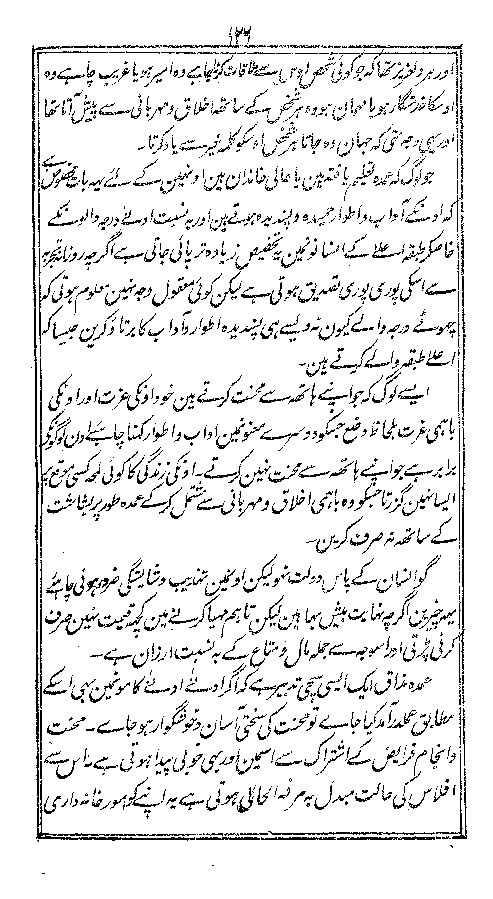 ۱۳۶
اور ہر دلعزیز تھا کہ جو کوئی شخص اوس سے ملاقات کرتا چاہے وہ امیر ہو یا غریب چاہے وہ
اوسکا خدمتگار ہو یا مہمان ہو وہ ہر شخص کے ساتھ اخلاق و مہربانی سے پیش آتا تھا
اور یہی وجہ تھی کہ جہان وہ جاتا ہر شخص اوسکو کلمہ خیر سے یاد کرتا۔
جو لوگ کہ عمدہ تعلیم یافتہ ہین یا عالی خاندان ہین اونھین کے لئے یہہ بات مخصوص ہے
کہ اونکے آداب و اطوار حمیدہ و پسندیدہ ہوتے ہین اور بہ نسبت ادنے درجہ والونکے
خاصکر طبقہ اعلے کے انسانونمین یہ تخصیص زیادہ تر پائی جاتی ہے اگرچہ روزانہ تجربہ
سے اسکی پوری پوری تصدیق ہوتی ہے لیکن کوئی معقول وجہ نہین معلوم ہوتی کہ
چھوٹے درجہ والے کیون نہ ویسے ہی پسندیدہ اطوار و آداب کا برتاؤ کرین جیسا کہ
اعلے طبقہ والے کرتے ہین۔
ایسے لوگ کہ جو اپنے ہاتھہ سے محنت کرتے ہین خود اونکی عزت اور اونکی
باہمی عزت بلحاظ وضع جسکو دوسرے معنونمین آداب و اطوار کہنا چاہئے اون لوگونکے
برابر ہے جو اپنے ہاتھہ سے محنت نہین کرتے۔ اونکی زندگی کا کوئی لمحہ کسی موقع پر
ایسا نہین گزرتا جسکو وہ باہمی اخلاق و مہربانی سے مشتمل کرکے عمدہ طور پر بشاشت
کے ساتھہ نہ صرف کرین۔
گو انسان کے پاس دولت نہو لیکن اونمین تہذیب و شایستگی ضرور ہونی چاہئے
یہہ چیزین اگرچہ نہایت بیش بہا ہین لیکن تاہم مہیا کرنے مین کچھہ قیمت نہین صرف
کرنی پڑتی اور اسوجہ سے جملہ مال و متاع کے بہ نسبت ارزان ہے۔
عمدہ مذاق ایک ایسی سچی تدبیر ہے کہ اگر ادنے ادنے کامونمین بھی اسکے
مطابق عملدرآمد کیا جاے تو محنت کی سختی آسان و خوشگوار ہو جاے۔ محنت
و انجام فرایض کے اشتراک سے اسمین اور بھی خوبی پیدا ہوتی ہے۔ اس سے
افلاس کی حالت مبدل بہ مرفہ الحالی ہوتی ہے یہ اپنے کو امور خانہ داری